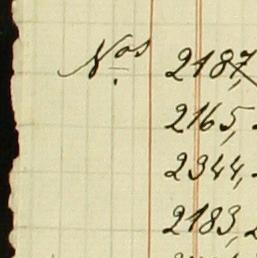 Nos 2187,
2165,
2344,
2183,